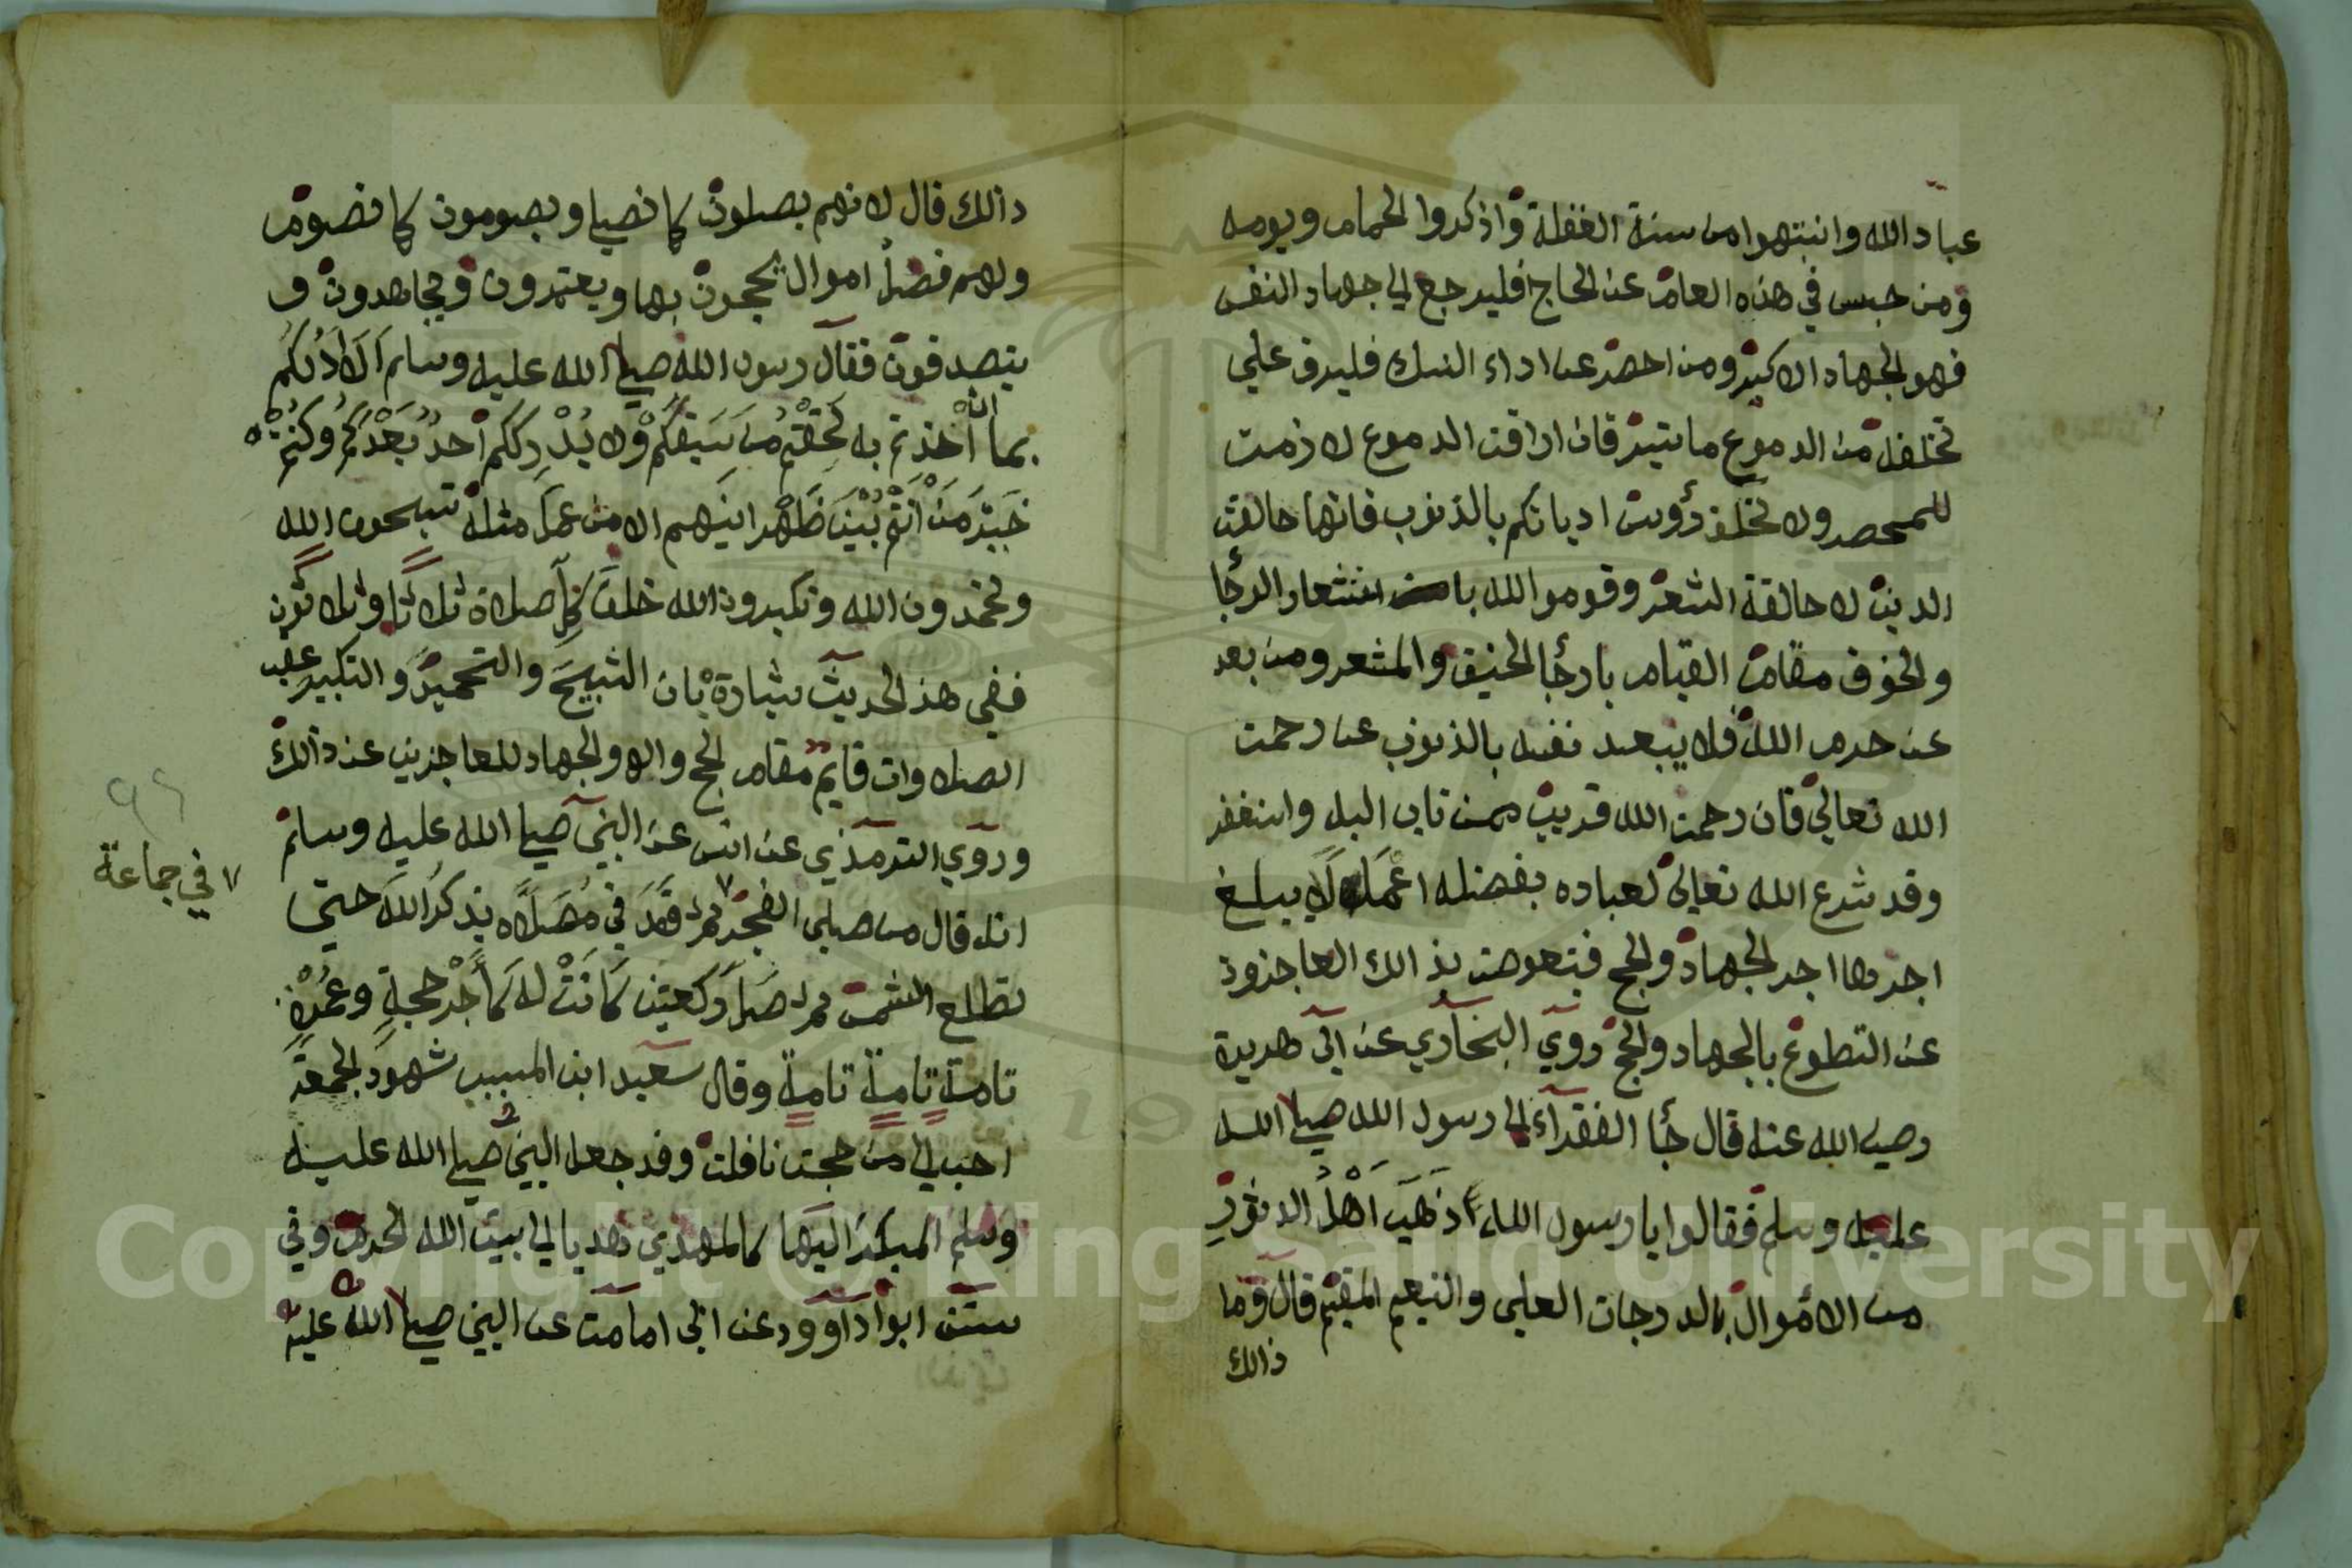 عباد الله وانتبهوا من سنة الغفلة واذكروا الحمام ويومه
ومن حبس في هذه العام عن الحاج فليرجع الي جهاد النفس
فهو الجهاد الاكبر ومن احصر عن اداء النسك فليرق علي
تخلفه من الدموع ما يتيسر فان اراقت الدموع لازمت
للمحصر ولا تحلق رؤوس اديانكم بالذنوب فانها حالقت
الدين لا حالقة الشعر وقوموا لله باستشعار الرجا
والخوف مقام القيام بارجا الخيف والمشعر ومن بعد
عن حرم الله فلا يبعد نفسه بالذنوب عن رحمت
الله تعالي فان رحمت الله قريب ممن تاب اليه واستغفر
وقد شرع الله تعالى لعباده بفضله اعمالا يبلغ
اجرها اجر الجهاد والحج فيتعوض بذالك العاجزون
عن التطوع بالجهاد والحج روي البخاري عن ابي هريرة
رضي الله عنه قال جأ الفقرآء الى رسول الله صلى الله
عليه وسلم فقالوا يا رسول الله ذَهَبَ اَهْلُ الدثور
من الاموال بالدرجات العلى والنعيم المقيم قال وما
ذالك
ذالك قال لانهم يصلون كما نصلي ويصومون كما نصوم
ولهم فضل اموال يحجون بها ويعتمرون ويجاهدون و
يتصدقون فقال رسول الله صلى الله عليه وسلم اَلَا اَدُلكُم
بما ان اَخذتم به لَحِقْتُم من سَبقكم ولا يُدْرِككم اَحدٌ بَعْدَكُم وكنتم
خَيْرَ مَنْ اَنْتُم بَيْنَ ظَهْرانيهم الا من عمل مثله تسبحون الله
وتحمدون الله وتكبرون الله خلف كل صلاة ثلاثا وثلاثون
ففي هذ الحديث بشارة بان التسبيح والتحميد والتكبير عقب
الصلاوات قايم مقام الحج والجهاد للعاجزين عن ذالك
وروي الترمذي عن انس عن النبي صلى الله عليه وسلم
انه قال من صلى الفجر ثم قعد في مُصَلَّاه يذكر الله حتى
٧ في جماعة
تطلع الشمس ثم صَلّا ركعتين كَانَتْ له كَأَجْر حجةٍ وعُمْرةٍ
تامة تامة تامة وقال سعيد ابن المسيب شهود الجمعة
احب الي من حجت نافلت وقد جعل النبي صلى الله عليه
وسلم المبكر اليها كالمهدي هديا الى بيت الله الحرم وفي
سنن ابوا داوود عن ابي امامت عن النبي صلى الله عليه
Copyright © King Saud University